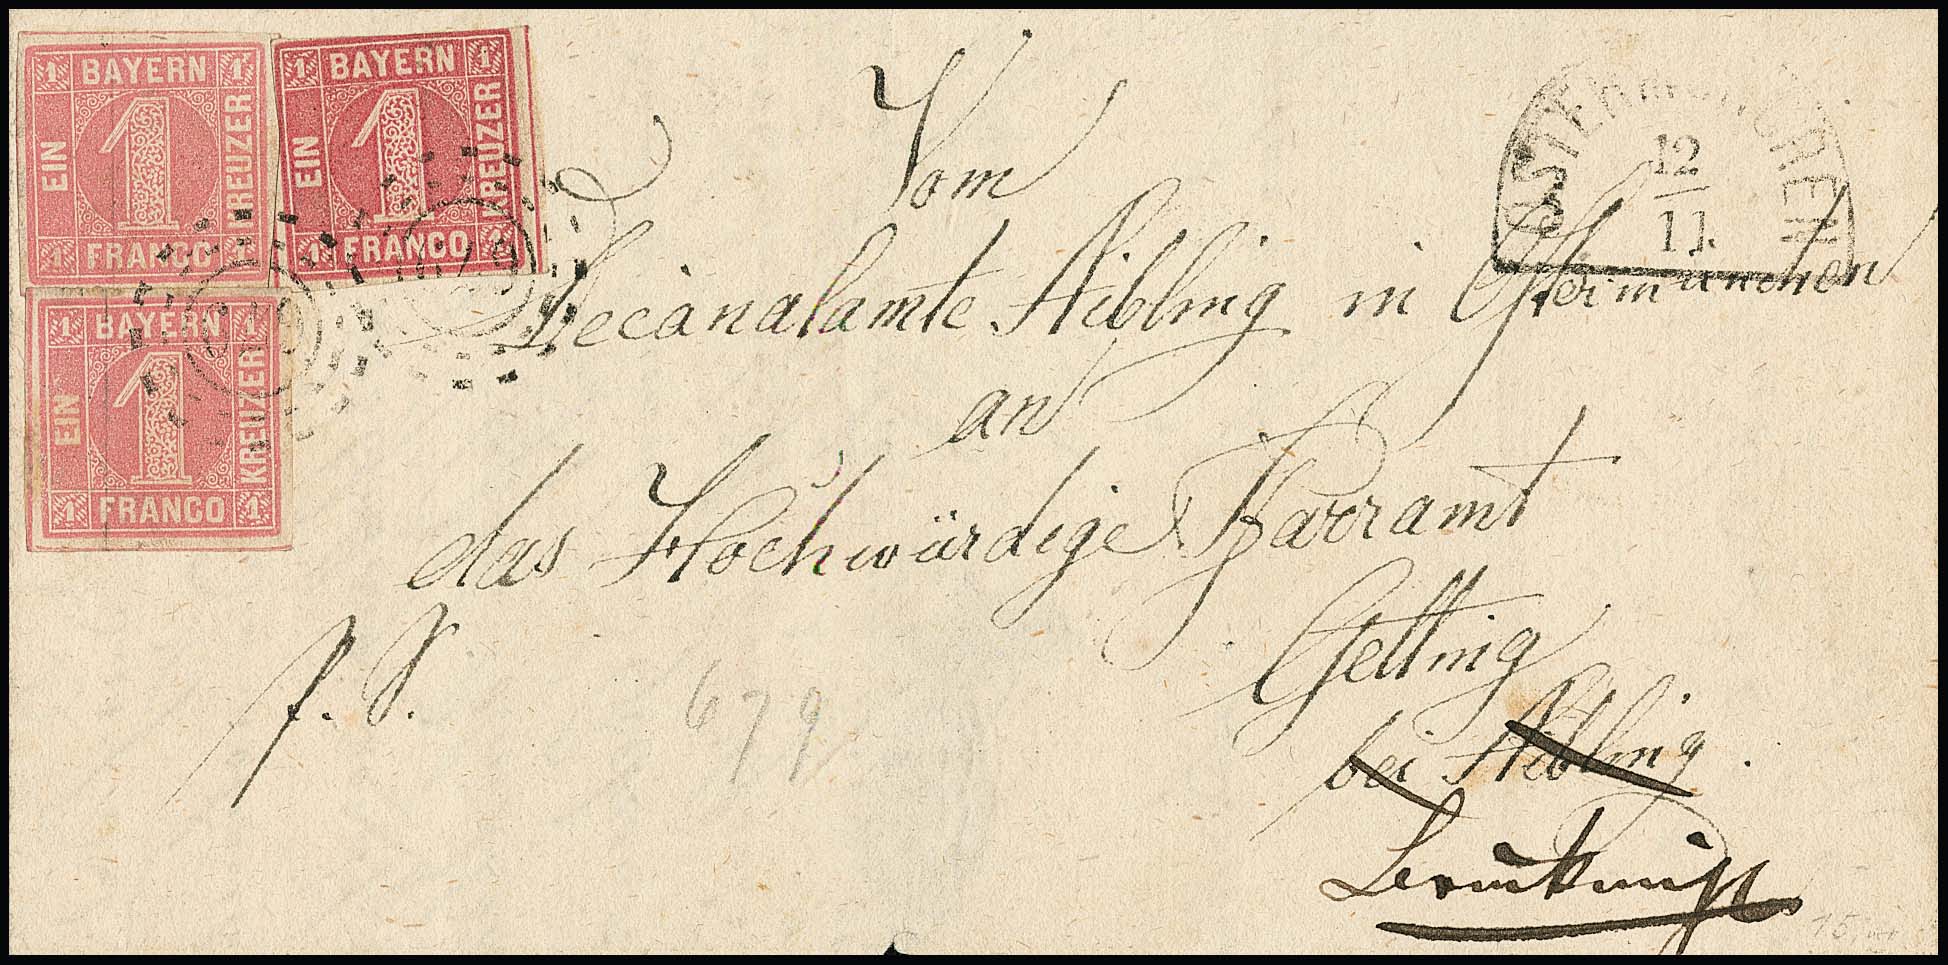 1 BAYERN 1
EIN
1
KREUZER
1 FRANCO 1
1 BAYERN 1
EIN
1
KREUZER
1 FRANCO 1
1 BAYERN 1
EIN
1
KREUZER
1 FRANCO 1
679
12
11.
Vom
Decanalamte Aibling in Ostermünchen
an
das Hochwürdige Pfarramt
Getting
bei Aibling.
p. S.
679
15,